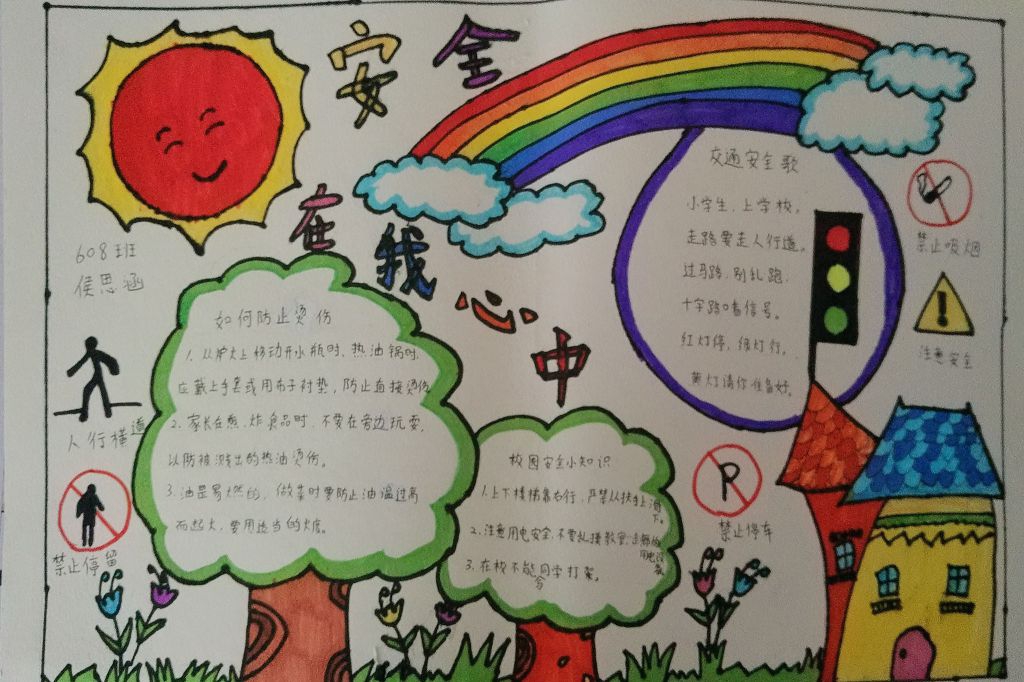 安全
在我心中
608班
侯思涵
如何防止烫伤
1.从炉火上移动开水瓶时、热油锅时,
应戴上手套或用布子衬垫,防止直接烫伤
2.家长在煮、炸食品时,不要在旁边玩耍,
以防被溅出的热油烫伤。
3.油是易燃的,做菜时要防止油温过高
而起火,要用适当的火度。
校园安全小知识
1.上下楼梯靠右行,严禁从扶手上滑
下。
2.注意用电安全,不要乱接教室
用电设备
3.在校不能同学打架。
交通安全歌
小学生,上学校,
走路要走人行道。
过马路,别乱跑,
十字路口看信号。
红灯停,绿灯行。
黄灯请你准备好。
禁止吸烟
注意安全
人行横道
禁止停留
P
禁止停车